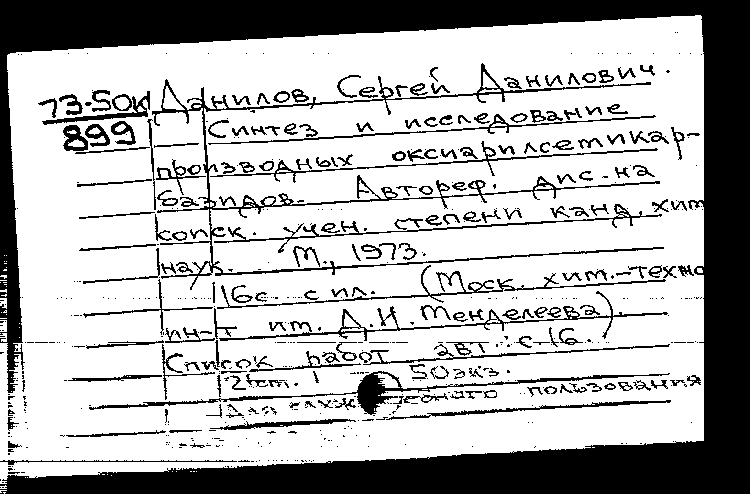 73-50к Данилов, Сергей Данилович.
899 Синтез и исследование
производных оксиарилсетикар-
базидов. Автореф. дис. на
соиск. учен. степени канд. хим
наук. М., 1973.
16с. с ил. (Моск. хим.-техно
ин-т им. Д.И. Менделеева).
Список работ авт.: с. 16.
50 экз.
Для пользования